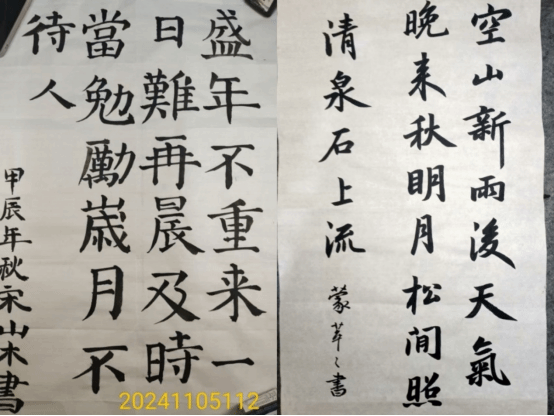 盛年不重来一
日難再晨及時
當勉勵歲月不
待人
甲辰年秋宋山木書
空山新雨後天氣
晚来秋明月松間照
清泉石上流
書
20241105112